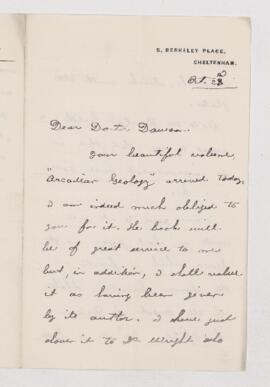 5, BERKELEY PLACE,
CHELTENHAM.
Oct.
Dear Doctor Dawson.
Your beautiful volume,
"Arcadian Geology" arrived today.
I am indeed much obliged to
you for it. The book will
be of great service to me
but, in addition, I shall value
it as having been given
by its author. I have just
shown it to Dr Wright who